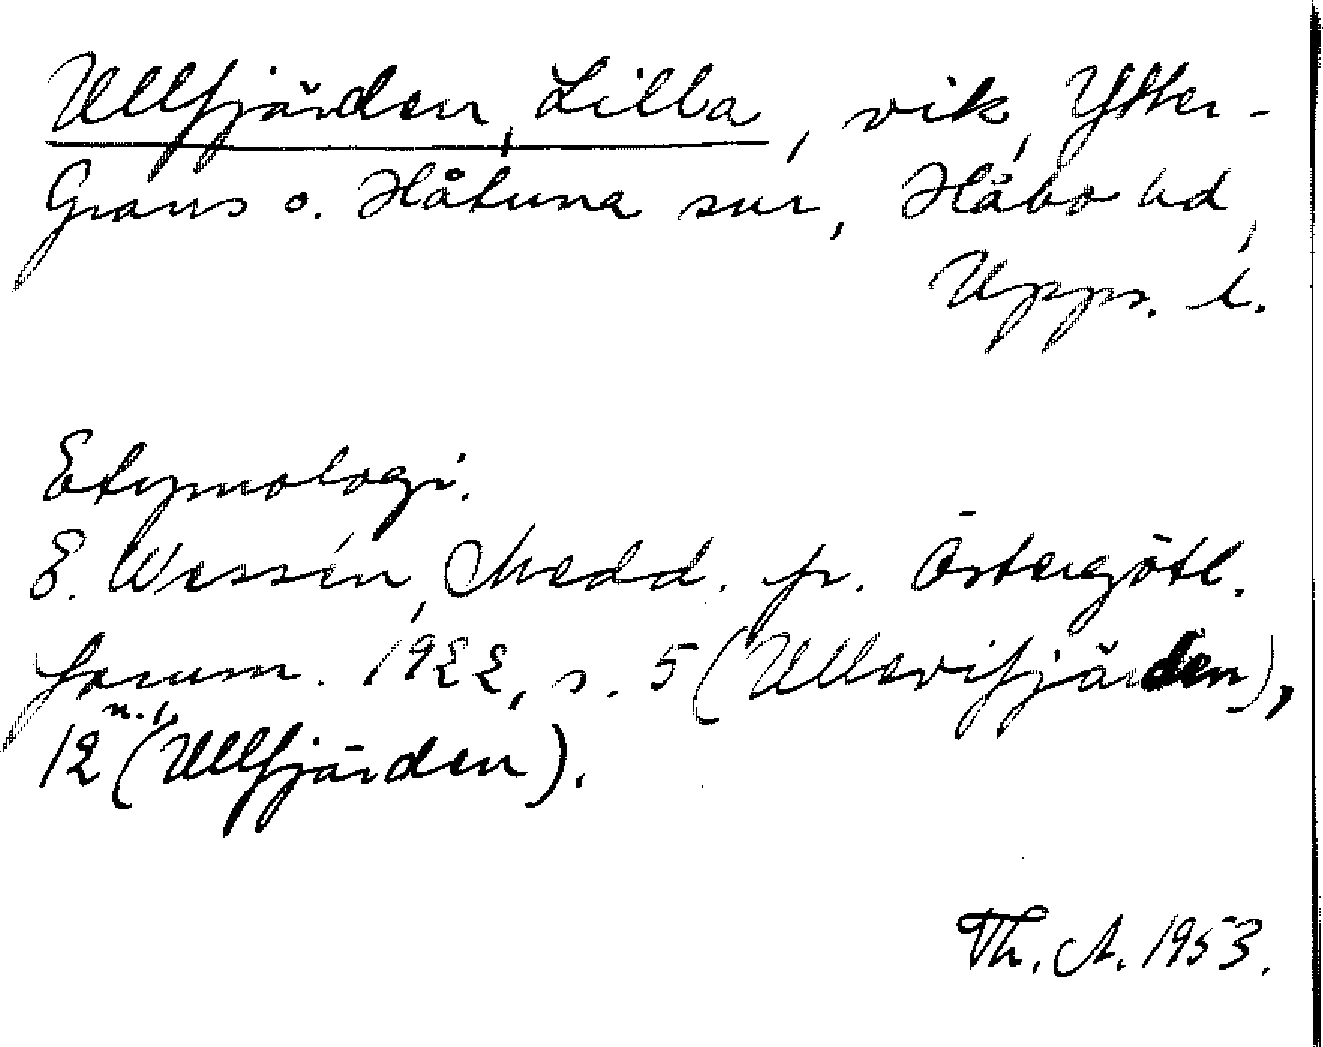 Ullfjärden, Lilla, vik, Ytter-
Grans o. Håtuna snr, Håbo hd,
Upps. l.
Etymologi.
E. Wessén, Medd. fr. Östergötl.
fornm. 1922, s. 5 (Ullevifjärden),
12 n. 1, (Ullfjärden).
Th. A. 1953.